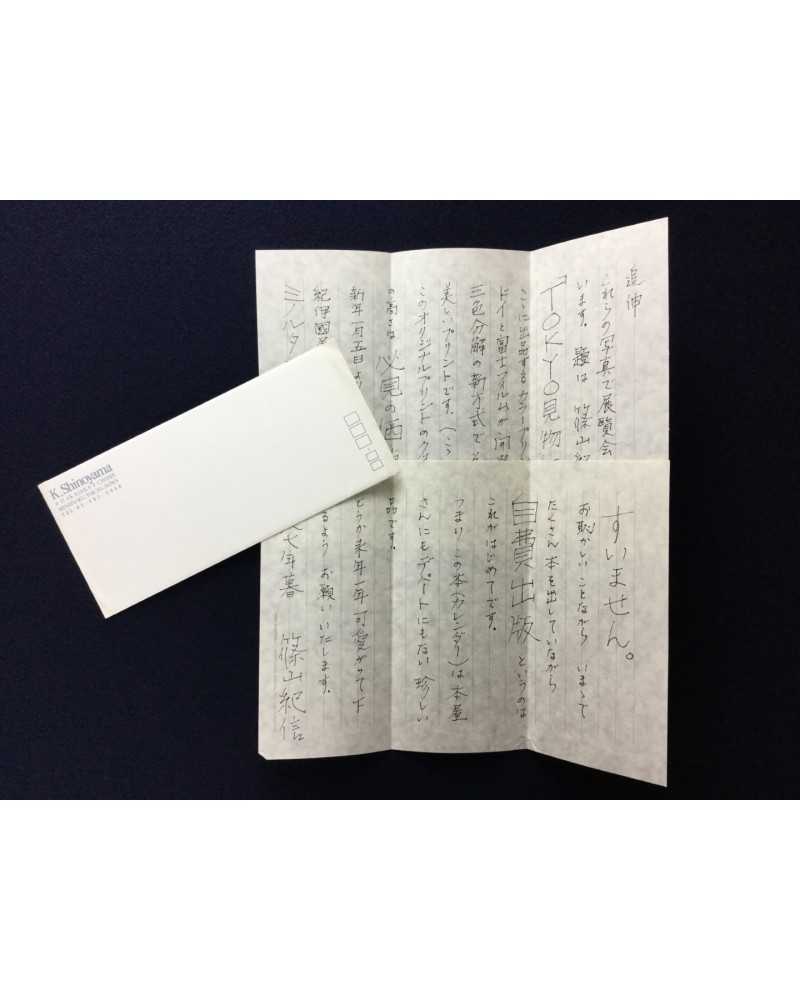 追伸
これらの写真で展覧会
います。題は 篠山紀
『TOKYO見物
こゝに出品するカラープリ
ドイと富士フイルムが 開
三色分解の新方式で
美しいプリントです。
このオリジナルプリントのク
の高さは 必見の価
新年一月五日より
紀伊國
ミノルタ
すいません。
お恥かしいことながら いまゝで
たくさん本を出していながら
自費出版 というのは
これがはじめてです。
つまり、この本(カレンダー)は本屋
さんにもデパートにもない 珍しい
品です。
どうか来年一年 可愛がって下
るよう お願いいたします。
七年暮 篠山紀信
K. Shinoyama